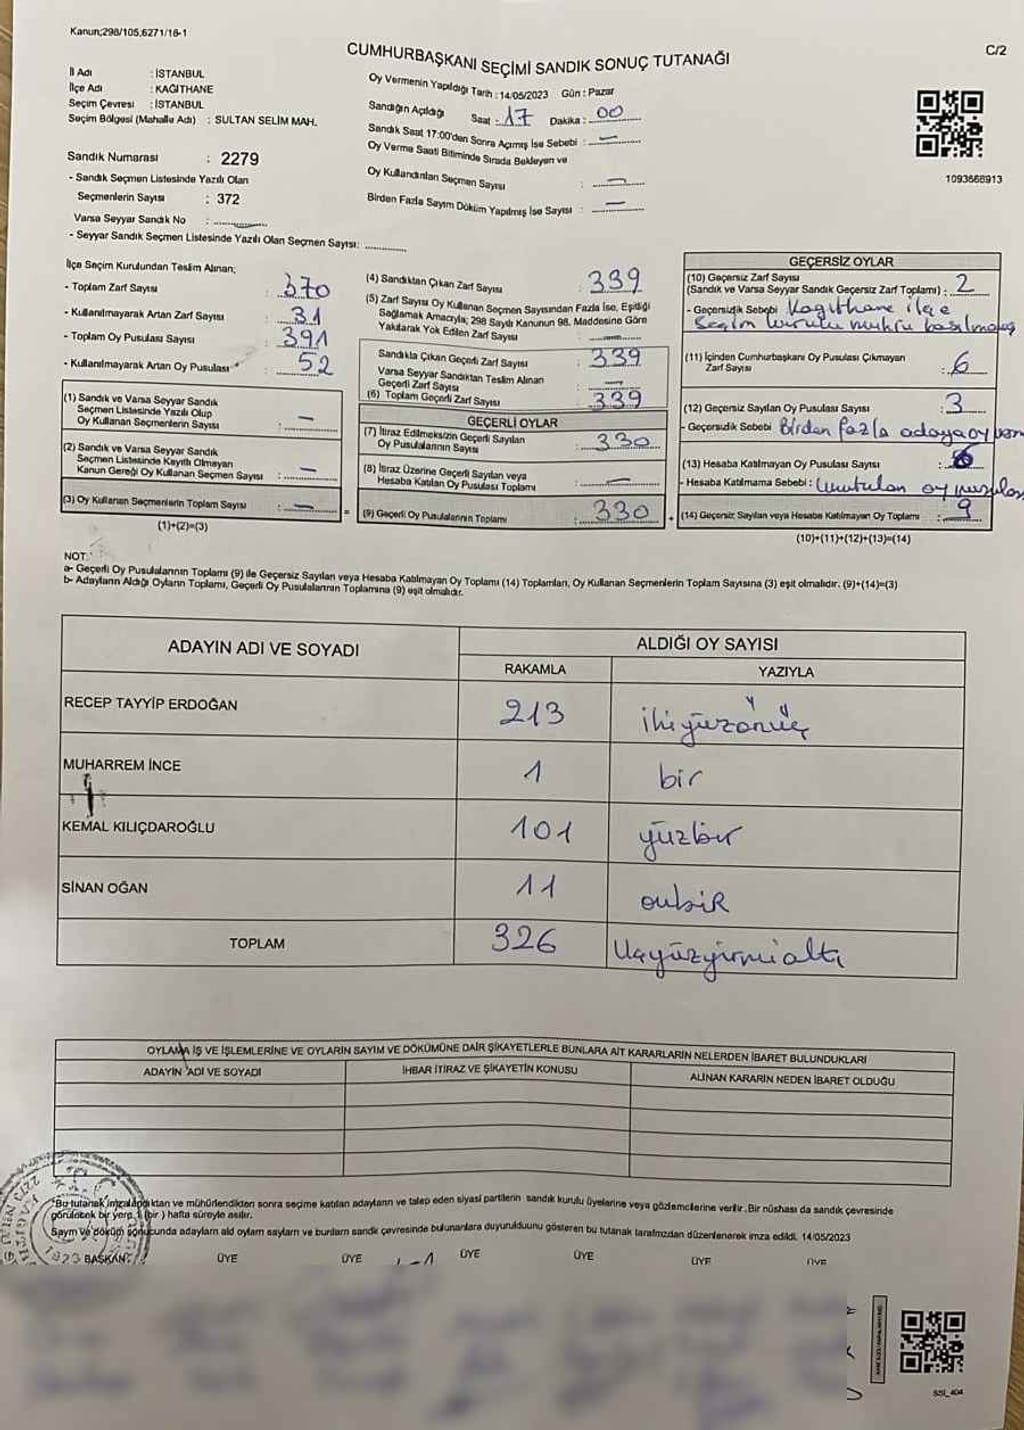 Kanun;298/105,6271/16-1
C/2
CUMHURBAŞKANI SEÇİMİ SANDIK SONUÇ TUTANAĞI
İl Adı : İSTANBUL
İlçe Adı : KAĞITHANE
Seçim Çevresi : İSTANBUL
Seçim Bölgesi (Mahalle Adı) : SULTAN SELİM MAH.
Sandık Numarası : 2279
- Sandık Seçmen Listesinde Yazılı Olan
Seçmenlerin Sayısı : 372
Varsa Seyyar Sandık No :
- Seyyar Sandık Seçmen Listesinde Yazılı Olan Seçmen Sayısı:
Oy Vermenin Yapıldığı Tarih : 14/05/2023 Gün : Pazar
Sandığın Açıldığı Saat : 17 Dakika : 00
Sandık Saat 17:00'den Sonra Açılmış İse Sebebi : —
Oy Verme Saati Bitiminde Sırada Bekleyen ve
Oy Kullandırılan Seçmen Sayısı : —
Birden Fazla Sayım Döküm Yapılmış İse Sayısı : —
1093668913
İlçe Seçim Kurulundan Teslim Alınan;
- Toplam Zarf Sayısı : 370
- Kullanılmayarak Artan Zarf Sayısı : 31
- Toplam Oy Pusulası Sayısı : 391
- Kullanılmayarak Artan Oy Pusulası : 52
(1) Sandık ve Varsa Seyyar Sandık
Seçmen Listesinde Yazılı Olup
Oy Kullanan Seçmenlerin Sayısı : —
(2) Sandık ve Varsa Seyyar Sandık
Seçmen Listesinde Kayıtlı Olmayan
Kanun Gereği Oy Kullanan Seçmen Sayısı : —
(3) Oy Kullanan Seçmenlerin Toplam Sayısı : —
(1)+(2)=(3)
(4) Sandıktan Çıkan Zarf Sayısı : 339
(5) Zarf Sayısı Oy Kullanan Seçmen Sayısından Fazla İse, Eşitliği
Sağlamak Amacıyla; 298 Sayılı Kanunun 98. Maddesine Göre
Yakılarak Yok Edilen Zarf Sayısı
Sandıkla Çıkan Geçerli Zarf Sayısı : 339
Varsa Seyyar Sandıktan Teslim Alınan
Geçerli Zarf Sayısı : —
(6) Toplam Geçerli Zarf Sayısı : 339
GEÇERLİ OYLAR
(7) İtiraz Edilmeksizin Geçerli Sayılan
Oy Pusulalarının Sayısı : 330
(8) İtiraz Üzerine Geçerli Sayılan veya
Hesaba Katılan Oy Pusulası Toplamı : —
(9) Geçerli Oy Pusulalarının Toplamı : 330
GEÇERSİZ OYLAR
(10) Geçersiz Zarf Sayısı
(Sandık ve Varsa Seyyar Sandık Geçersiz Zarf Toplamı) : 2
- Geçersizlik Sebebi Kağıthane ilçe
Seçim kurulu mührü basılmamış
(11) İçinden Cumhurbaşkanı Oy Pusulası Çıkmayan
Zarf Sayısı : 6
(12) Geçersiz Sayılan Oy Pusulası Sayısı : 3
- Geçersizlik Sebebi Birden fazla adaya oy
(13) Hesaba Katılmayan Oy Pusulası Sayısı :
- Hesaba Katılmama Sebebi : Unutulan oy
(14) Geçersiz Sayılan veya Hesaba Katılmayan Oy Toplamı : 9
(10)+(11)+(12)+(13)=(14)
NOT:
a- Geçerli Oy Pusulalarının Toplamı (9) ile Geçersiz Sayılan veya Hesaba Katılmayan Oy Toplamı (14) Toplamları, Oy Kullanan Seçmenlerin Toplam Sayısına (3) eşit olmalıdır. (9)+(14)=(3)
b- Adayların Aldığı Oyların Toplamı, Geçerli Oy Pusulalarının Toplamına (9) eşit olmalıdır.
ADAYIN ADI VE SOYADI
ALDIĞI OY SAYISI
RAKAMLA YAZIYLA
RECEP TAYYİP ERDOĞAN 213 ikiyüzonüç
MUHARREM İNCE 1 bir
KEMAL KILIÇDAROĞLU 101 yüzbir
SİNAN OĞAN 11 onbir
TOPLAM 326 Üçyüzyirmialtı
OYLAMA İŞ VE İŞLEMLERİNE VE OYLARIN SAYIM VE DÖKÜMÜNE DAİR ŞİKAYETLERLE BUNLARA AİT KARARLARIN NELERDEN İBARET BULUNDUKLARI
ADAYIN ADI VE SOYADI İHBAR İTİRAZ VE ŞİKAYETİN KONUSU ALINAN KARARIN NEDEN İBARET OLDUĞU
*Bu tutanak imzalandıktan ve mühürlendikten sonra seçime katılan adayların ve talep eden siyasi partilerin sandık kurulu üyelerine veya gözlemcilerine verilir. Bir nüshası da sandık çevresinde
görülecek bir yere 1 (bir) hafta süreyle asılır.
Sayım ve döküm sonucunda adayların aldığı oyların sayıları ve bunların sandık çevresinde bulunanlara duyurulduğunu gösteren bu tutanak tarafımızdan düzenlenerek imza edildi. 14/05/2023
BAŞKAN ÜYE ÜYE ÜYE ÜYE ÜYE ÜYE
SSİ_404